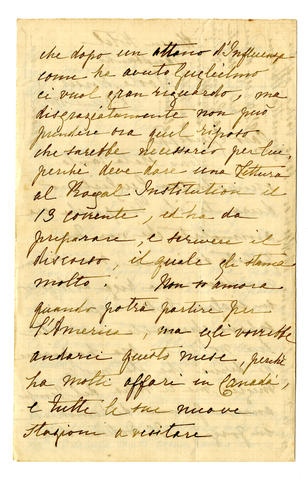 che dopo un attacco d'Influenza
come ha avuto Guglielmo
ci vuol gran riguardo, ma
disgraziatamente non può
prendere ora quel riposo
che sarebbe necessario per lui,
perchè deve dare una lettura
al Royal Institution il
13 corrente, ed ha da
preparare, e scrivere il
discorso, il quale gli stanca
molto. Non so ancora
quando potrà partire per
l'America, ma egli vorrebbe
andarci questo mese, perchè
ha molti affari in Canadà,
e tutte le sue nuove
stazioni a visitare